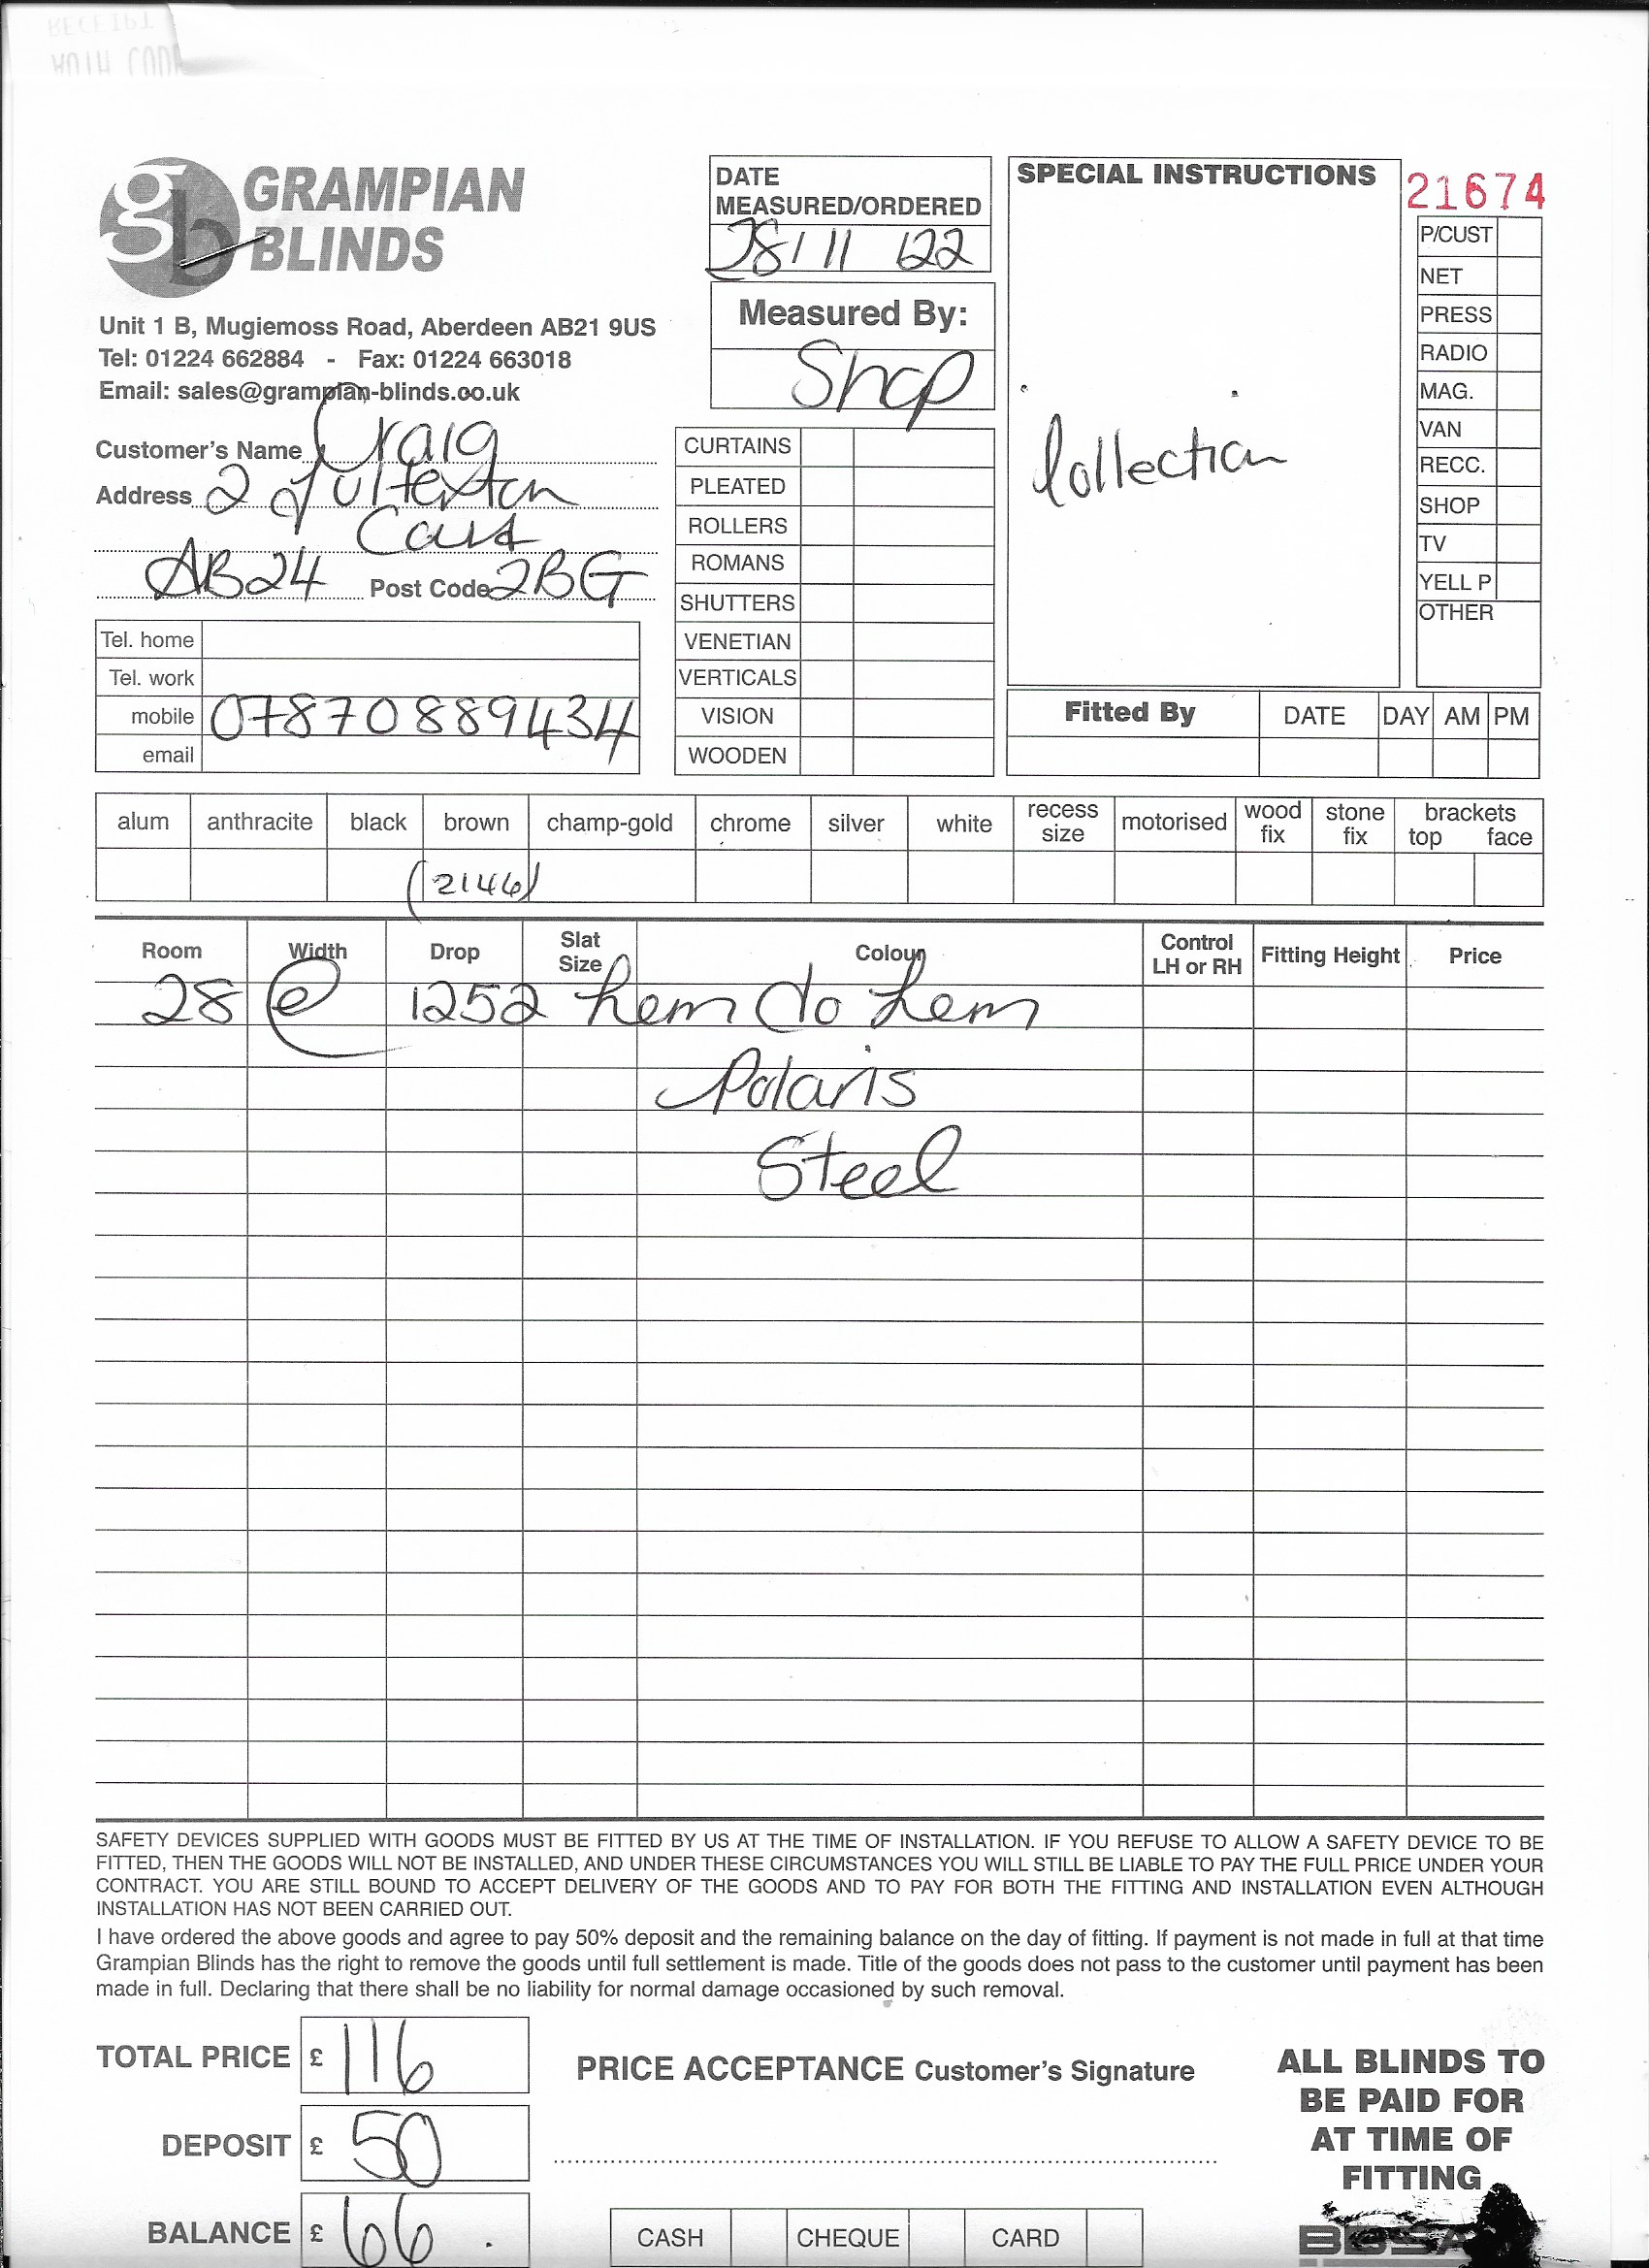 GRAMPIAN
BLINDS
Unit 1 B, Mugiemoss Road, Aberdeen AB21 9US
Tel: 01224 662884 - Fax: 01224 663018
Email: sales@grampian-blinds.co.uk
Customer's Name Craig
Address 2
AB24 Post Code 2BG
Tel. home
Tel. work
mobile 07870889434
email
DATE
MEASURED/ORDERED
28/11/22
Measured By:
Shop
CURTAINS
PLEATED
ROLLERS
ROMANS
SHUTTERS
VENETIAN
VERTICALS
VISION
WOODEN
SPECIAL INSTRUCTIONS
Collection
21674
P/CUST
NET
PRESS
RADIO
MAG.
VAN
RECC.
SHOP
TV
YELL P
OTHER
Fitted By DATE DAY AM PM
alum anthracite black brown champ-gold chrome silver white recess size motorised wood fix stone fix brackets top face
(2146)
Room Width Drop Slat Size Colour Control LH or RH Fitting Height Price
28 @ 1252 hem to hem
Polaris
Steel
SAFETY DEVICES SUPPLIED WITH GOODS MUST BE FITTED BY US AT THE TIME OF INSTALLATION. IF YOU REFUSE TO ALLOW A SAFETY DEVICE TO BE
FITTED, THEN THE GOODS WILL NOT BE INSTALLED, AND UNDER THESE CIRCUMSTANCES YOU WILL STILL BE LIABLE TO PAY THE FULL PRICE UNDER YOUR
CONTRACT. YOU ARE STILL BOUND TO ACCEPT DELIVERY OF THE GOODS AND TO PAY FOR BOTH THE FITTING AND INSTALLATION EVEN ALTHOUGH
INSTALLATION HAS NOT BEEN CARRIED OUT.
I have ordered the above goods and agree to pay 50% deposit and the remaining balance on the day of fitting. If payment is not made in full at that time
Grampian Blinds has the right to remove the goods until full settlement is made. Title of the goods does not pass to the customer until payment has been
made in full. Declaring that there shall be no liability for normal damage occasioned by such removal.
TOTAL PRICE £ 116
DEPOSIT £ 50
BALANCE £ 66.
PRICE ACCEPTANCE Customer's Signature
CASH CHEQUE CARD
ALL BLINDS TO
BE PAID FOR
AT TIME OF
FITTING